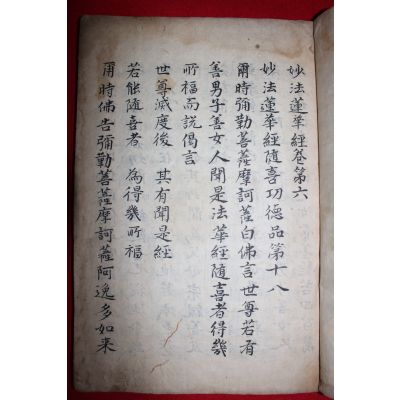 妙法蓮華經卷第六
妙法蓮華經隨喜功德品第十八
爾時彌勒菩薩摩訶薩白佛言世尊若有
善男子善女人聞是法華經隨喜者得幾
所福而說偈言
世尊滅度後 其有聞是經
若能隨喜者 為得幾所福
爾時佛告彌勒菩薩摩訶薩阿逸多如来